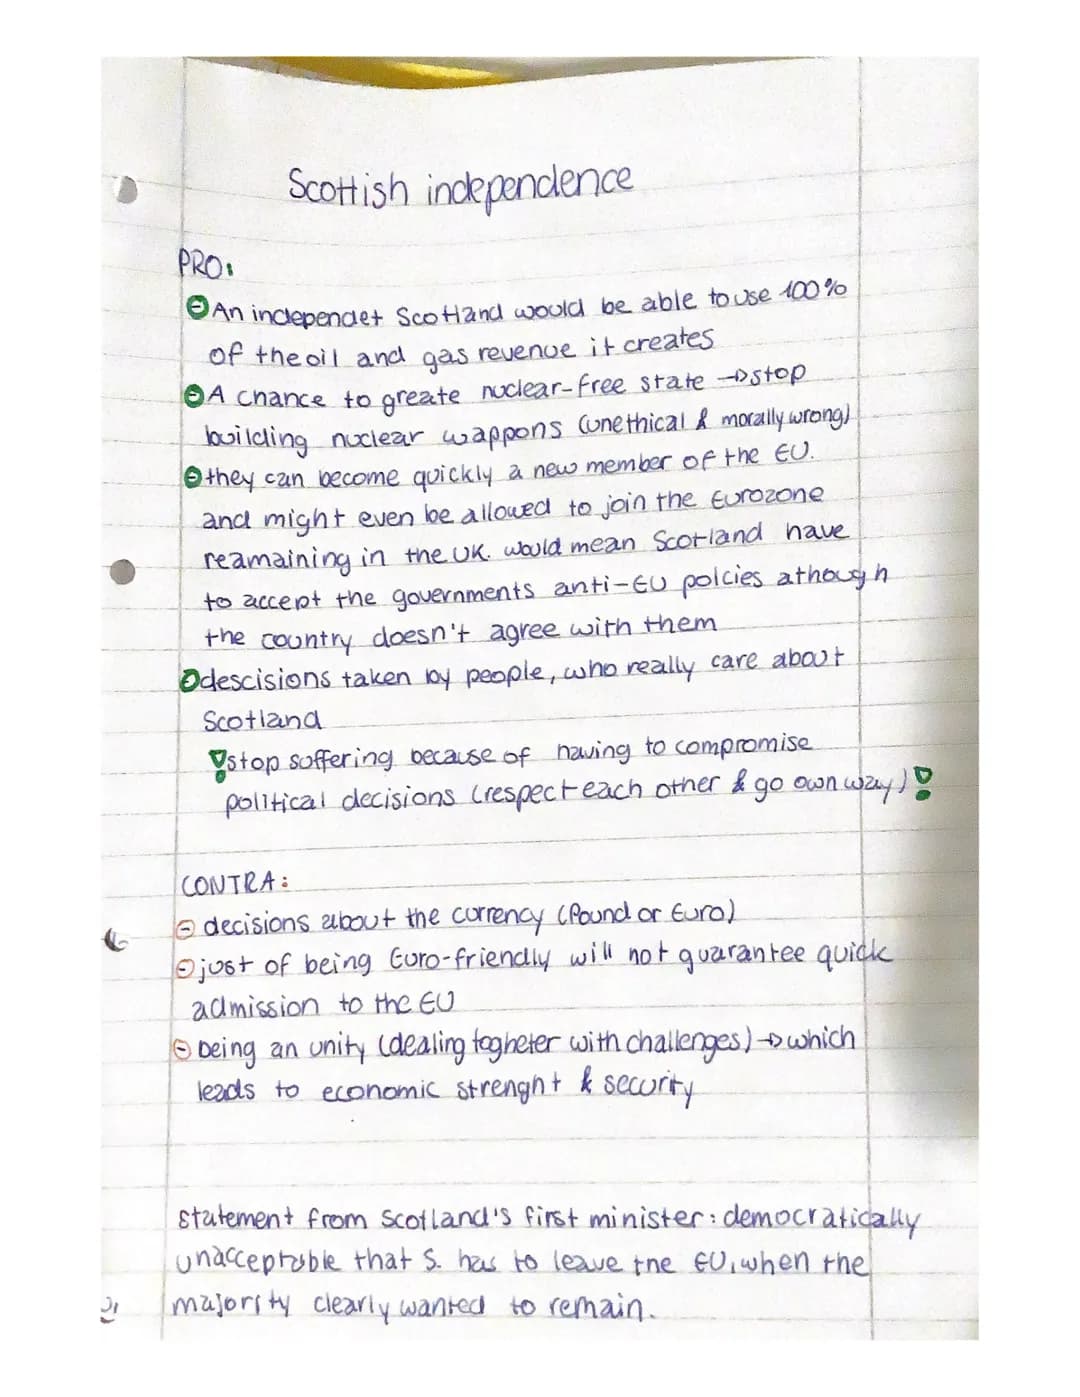 Scottish independence
PRO:
An independet Scotland would be able to use 100%
of the oil and gas revenue it creates
A chance to greate nuclear-free state → stop
building nuclear wappons (unethical & morally wrong)
they can become quickly a new member of the EU.
and might even be allowed to join the Eurozone
reamaining in the UK. would mean Scotland have
to accept the governments anti-EU polcies athough
the country doesn't agree with them
descisions taken by people, who really care about
Scotland
stop soffering because of having to compromise
political decisions (respect each other & go own way)
CONTRA:
decisions about the currency (Pound or Euro)
just of being Euro-friendly will not guarantee quick
admission to the EU
being an unity (dealing togheter with challenges) → which
leads to economic strenght & security
statement from Scotland's first minister: democratically
unacceptable that S. has to leave the EU, when the
majority clearly wanted to remain.